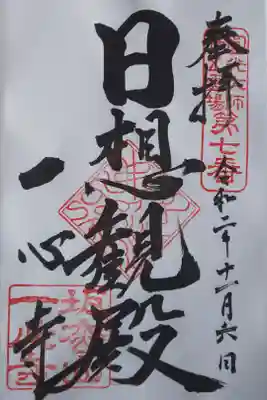 奉拝
第七番
令和二年十一月六日
日想観殿
一心寺